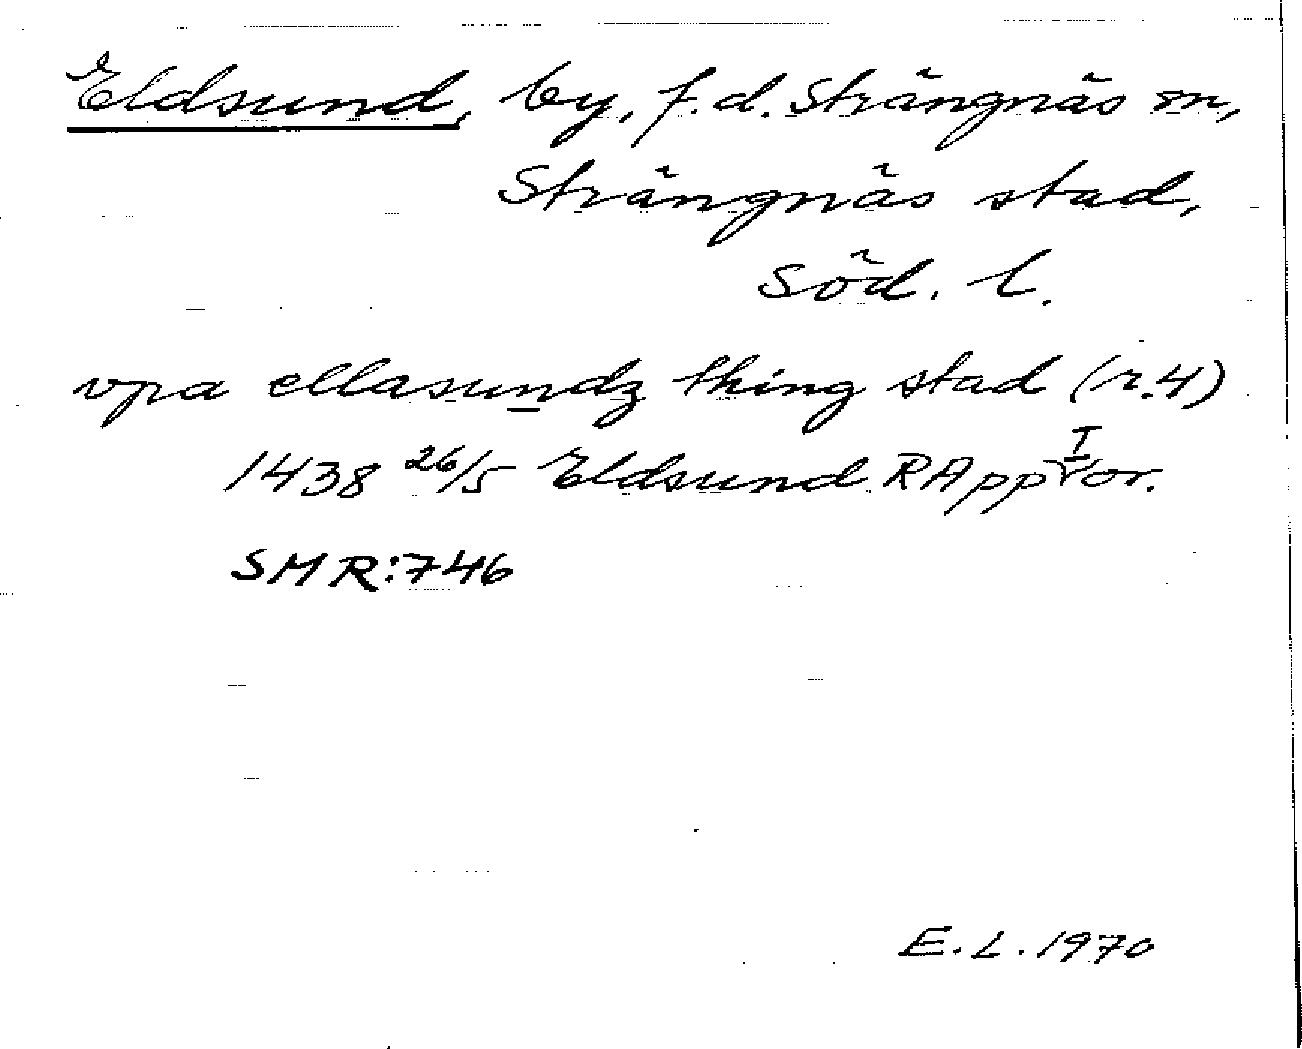 Eldsund, by, f.d. Strängnäs sn,
Strängnäs stad,
Söd. l.
vpa ellasundz thing stad (r.4)
1438 26/5 Eldsund RApp I or.
SMR:746
E.L.1970